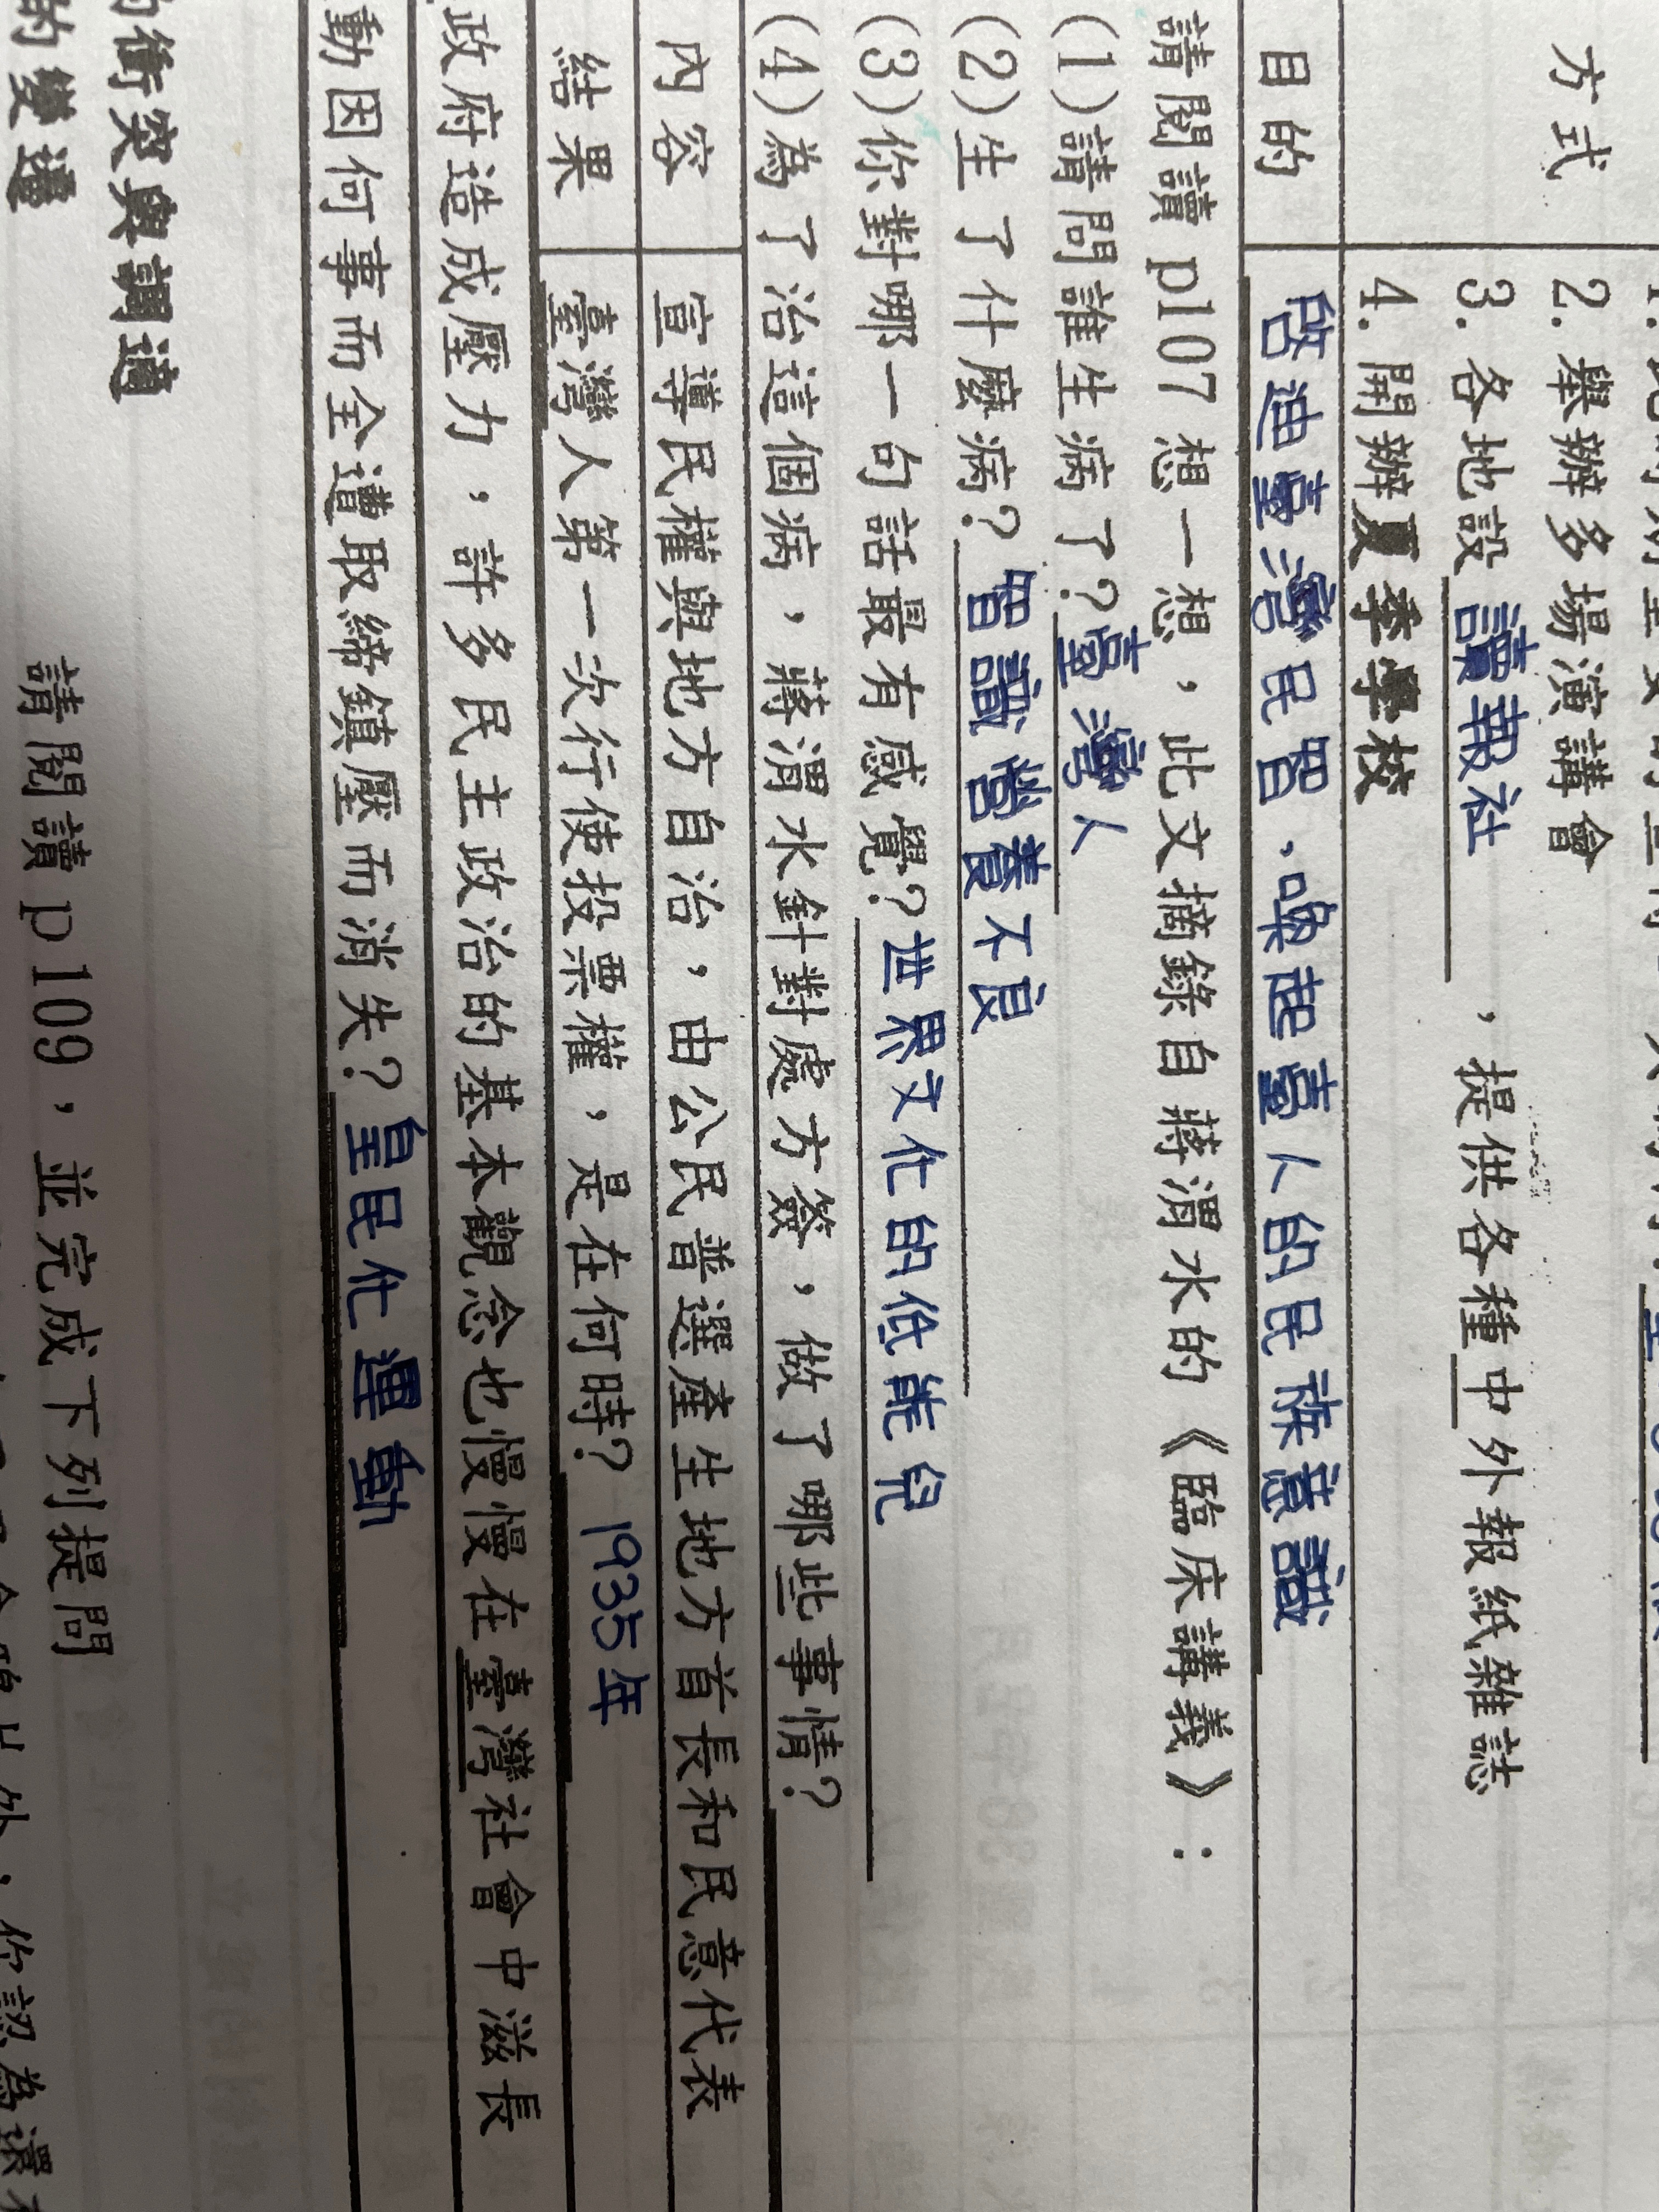 方式
2. 舉辦多場演講會
3. 各地設讀報社，提供各種中外報紙雜誌
4. 開辦夏季學校
目的
啓迪臺灣民智、喚起臺人的民族意識
請閱讀 p107 想一想，此文摘錄自蔣渭水的《臨床講義》：
(1)請問誰生病了？臺灣人
(2)生了什麼病？智識營養不良
(3)你對哪一句話最有感覺？世界文化的低能兒
(4)為了治這個病，蔣渭水針對處方簽，做了哪些事情？
內容
宣導民權與地方自治，由公民普選產生地方首長和民意代表
結果
臺灣人第一次行使投票權，是在何時？1935年
政府造成壓力，許多民主政治的基本觀念也慢慢在臺灣社會中滋長
動因何事而全遭取締鎮壓而消失？皇民化運動
衝突與調適
的變遷
請閱讀 p109，並完成下列提問